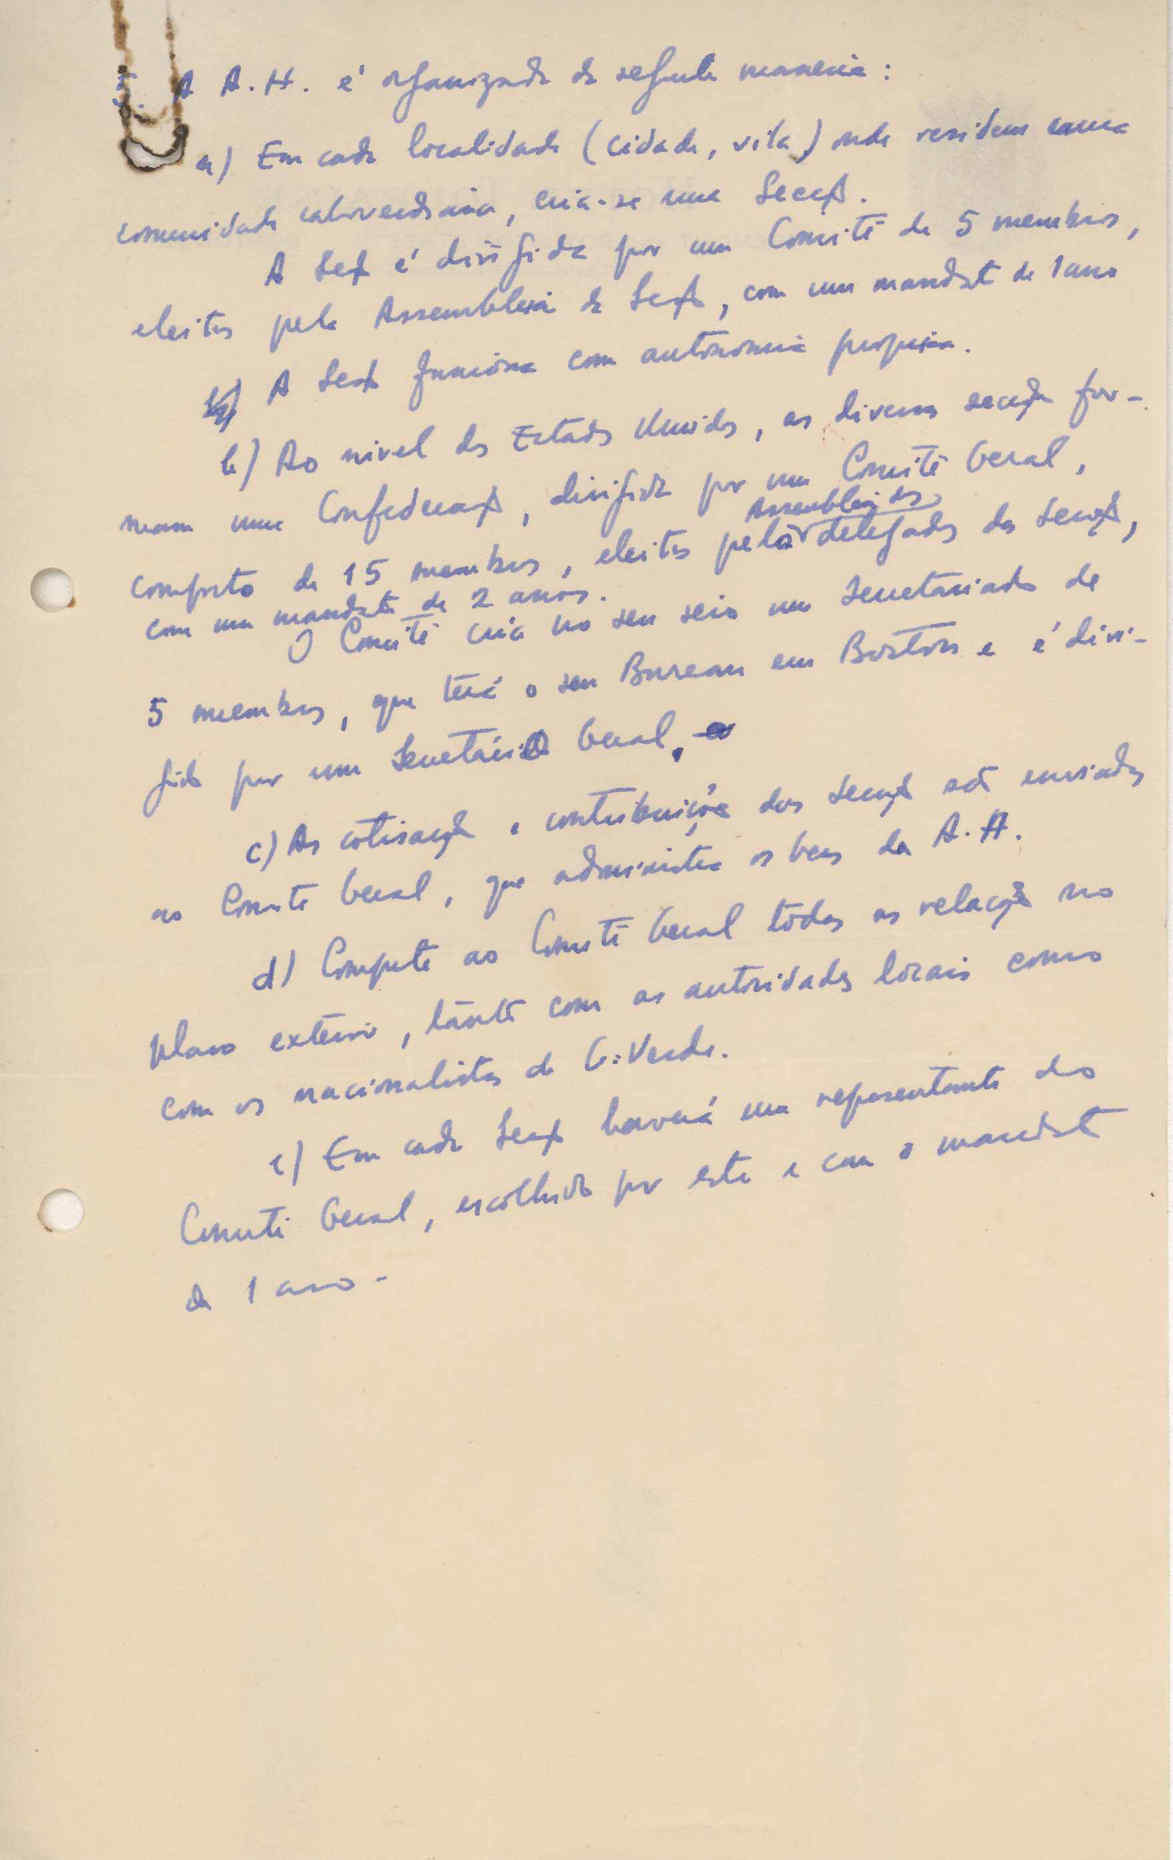 5. A A.H. é organizada da seguinte maneira:
a) Em cada localidade (cidade, vila) onde residem uma
comunidade caboverdeana, cria-se uma Secção.
A Secção é dirigida por um Comité de 5 membros,
eleitos pela Assembleia da Secção, com um mandato de 1 ano
A Secção funciona com autonomia propria.
b) Ao nivel dos Estados Unidos, as diversas secções for-
mam uma Confederação, dirigida por um Comité Geral,
composto de 15 membros, eleitos pela Assembleia dos delegados das Secções,
com um mandato de 2 anos.
O Comité cria no seu seio um Secretariado de
5 membros, que terá o seu Bureau em Boston e é diri-
gido por um Secretário Geral.
c) As cotisações e contribuições das Secções são enviadas
ao Comité Geral, que administra os bens da A.H.
d) Compete ao Comité Geral todas as relações no
plano exterior, tanto com as autoridades locais como
com os nacionalistas de C. Verde.
e) Em cada Secção haverá um representante do
Comité Geral, escolhido por este e com o mandato
de 1 ano -